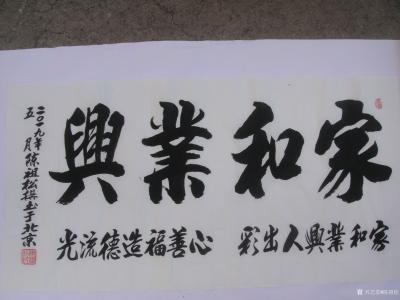 家和業興
家和業興人出彩
心善福造德流光
二〇一九年
五月陈祖松撰书于北京